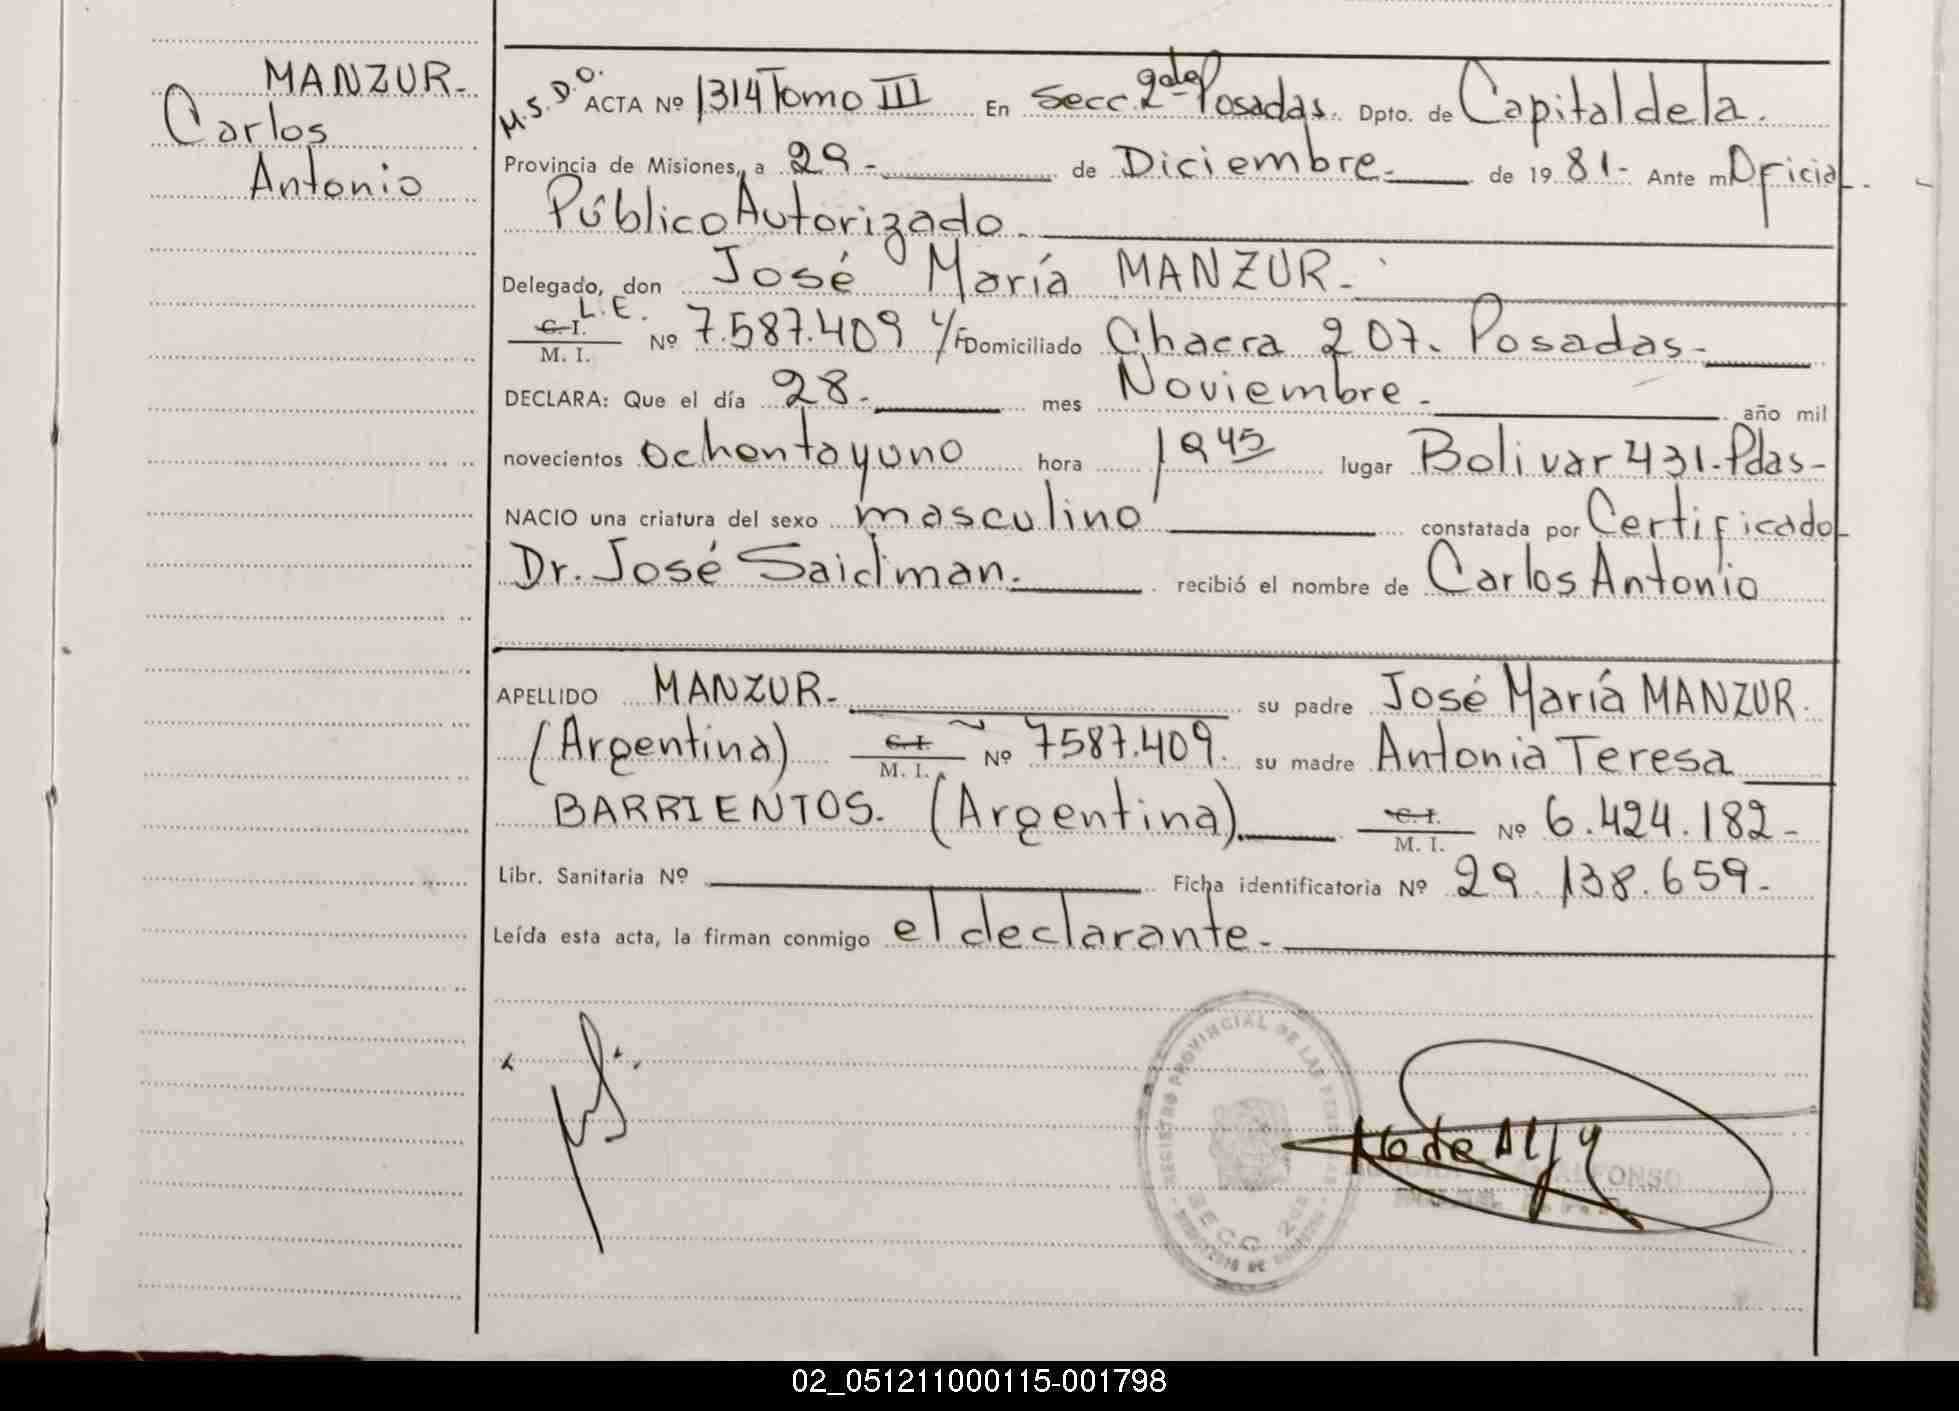 MANZUR.
Carlos
Antonio
M.S.D.O. ACTA Nº 1314 Tomo III En Secc. 2da Posadas. Dpto. de Capital de la
Provincia de Misiones, a 29.- de Diciembre.- de 1981.- Ante mi Oficial
Público Autorizado.
Delegado, don José María MANZUR.-
L.E.
C. I.
M. I. Nº 7.587.409 Domiciliado Chacra 207. Posadas.-
DECLARA: Que el día 28.- mes Noviembre.- año mil
novecientos ochentayuno hora 19 45 lugar Bolivar 431.Pdas-
NACIO una criatura del sexo masculino constatada por Certificado
Dr. José Saidman. recibió el nombre de Carlos Antonio
APELLIDO MANZUR.- su padre José María MANZUR.
(Argentina) C. I. M. I. Nº 7587.409. su madre Antonia Teresa
BARRIENTOS. (Argentina). C. I. M. I. Nº 6.424.182-
Libr. Sanitaria Nº Ficha identificatoria Nº 29.138.659.-
Leída esta acta, la firman conmigo el declarante.-
REGISTRO PROVINCIAL DE LAS PERSONAS
SECC. 2da
02_051211000115-001798